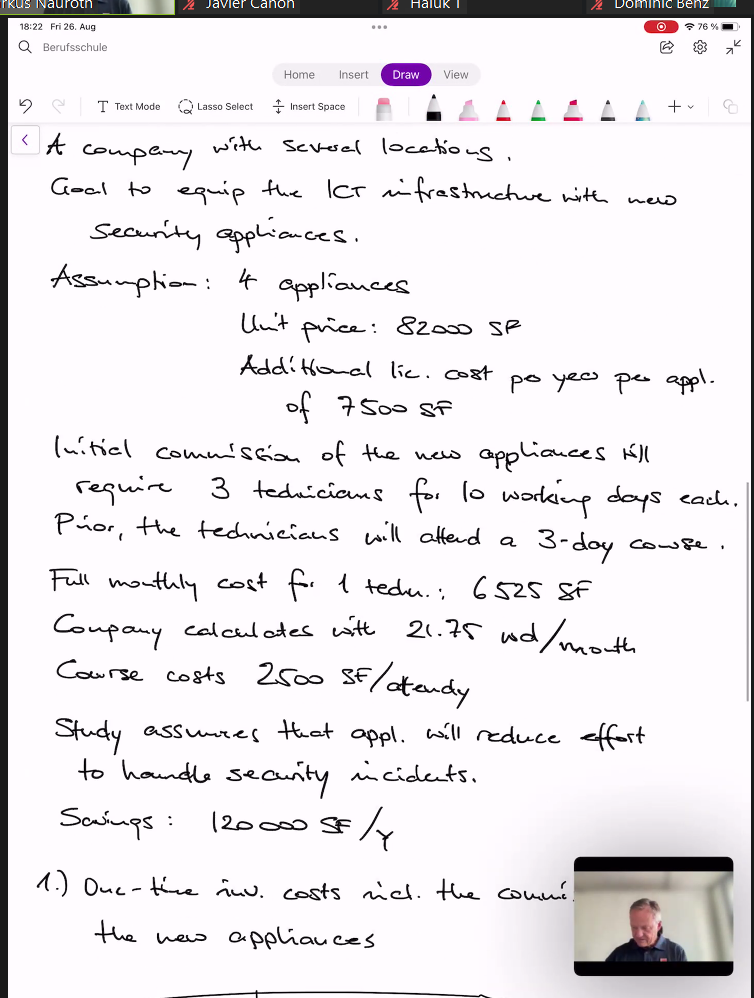 rkus Nauroth
Javier Cañon
Haluk T
Dominic Benz
18:22 Fri 26. Aug
76 %
Berufsschule
Home Insert Draw View
Text Mode Lasso Select Insert Space
A company with several locations.
Goal to equip the ICT infrastructure with new
security appliances.
Assumption: 4 appliances
Unit price: 82000 SF
Additional lic. cost per year per appl.
of 7500 SF
Initial commission of the new appliances will
require 3 technicians for 10 working days each.
Prior, the technicians will attend a 3-day course.
Full monthly cost for 1 techn.: 6525 SF
Company calculates with 21.75 wd/month
Course costs 2500 SF/atendy
Study assumes that appl. will reduce effort
to handle security incidents.
Savings: 120000 SF/Y
1.) One-time inv. costs incl. the commi
the new appliances